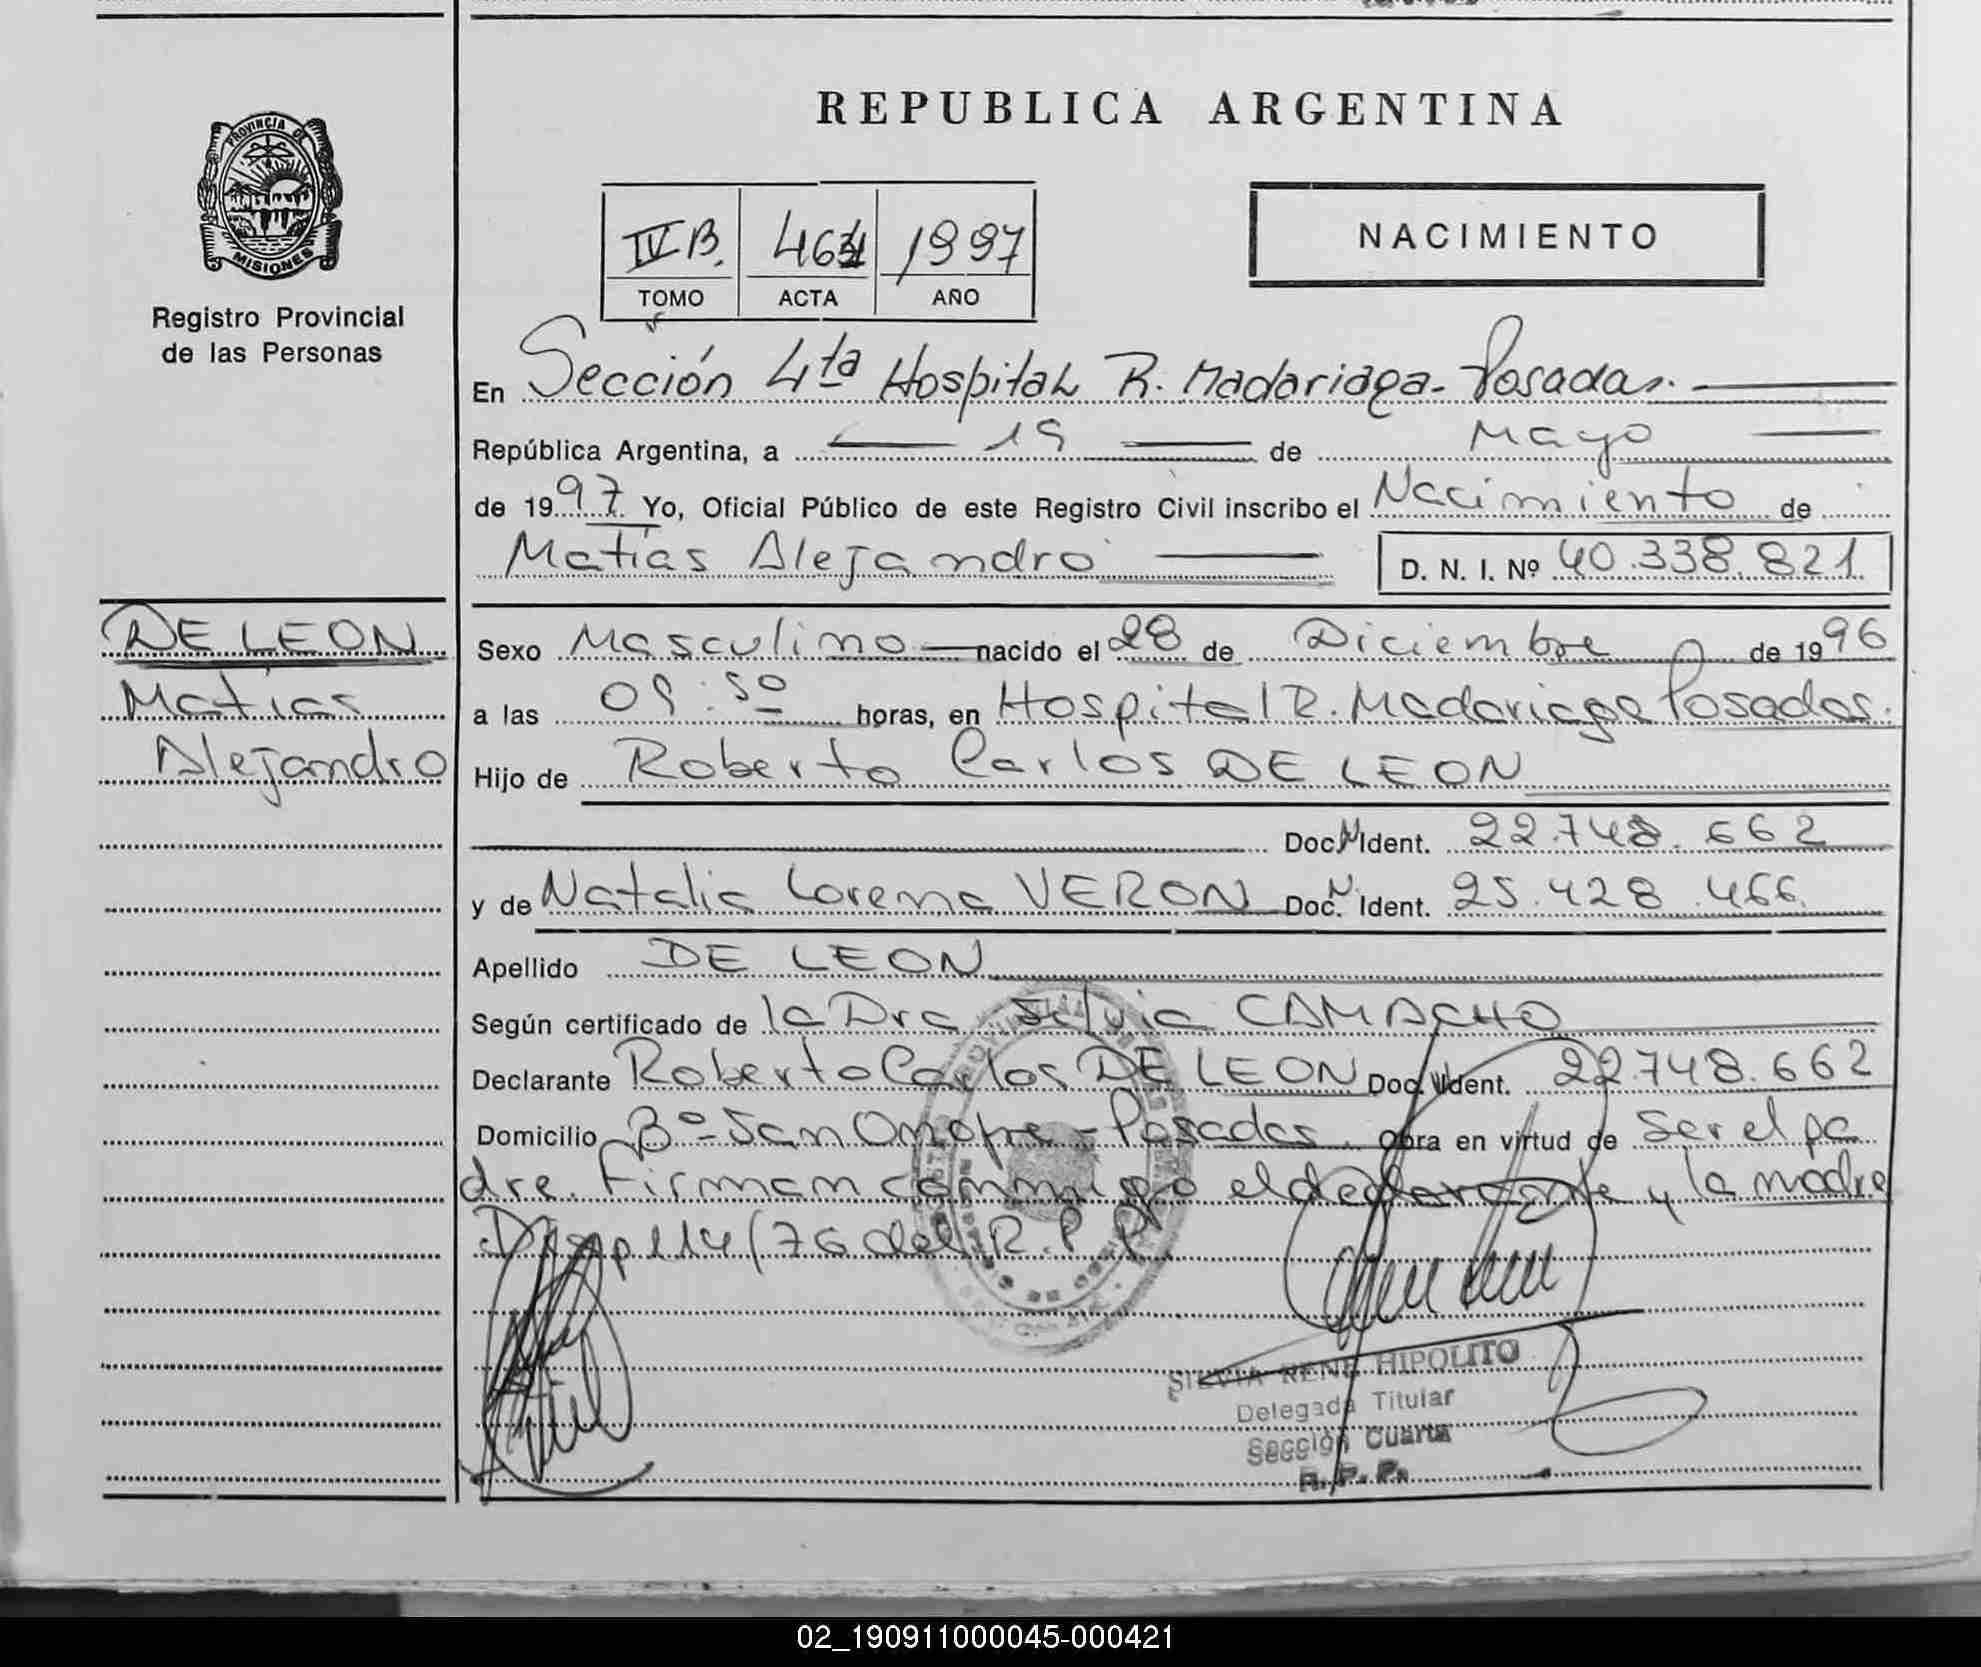 REPUBLICA ARGENTINA
PROVINCIA DE
MISIONES
Registro Provincial
de las Personas
IV B. 1997
TOMO ACTA AÑO
NACIMIENTO
En Sección 4ta Hospital R. Madariaga - Posadas.
República Argentina, a 19 de Mayo
de 1997 Yo, Oficial Público de este Registro Civil inscribo el Nacimiento de
Matías Alejandro D. N. I. Nº 40.338.821
DE LEON
Matías
Alejandro
Sexo Masculino nacido el 28 de Diciembre de 1996
a las 09:50 horas, en Hospital R. Madariaga Posadas.
Hijo de Roberto Carlos DE LEON
Doc. N Ident. 22.748.662
y de Natalia Lorena VERON Doc. N. Ident. 25.428.466.
Apellido DE LEON
Según certificado de la Dra Silvia CAMACHO
Declarante Roberto Carlos DE LEON Doc. Ident. 22.748.662
Domicilio Bº San Onofre - Posadas. Obra en virtud de ser el pa
dre. Firman conmigo el declarante y la madre
Disp 114/76 del R.P.P.
SILVIA RENE HIPOLITO
Delegada Titular
Sección Cuarta
R. P. P.
02_190911000045-000421